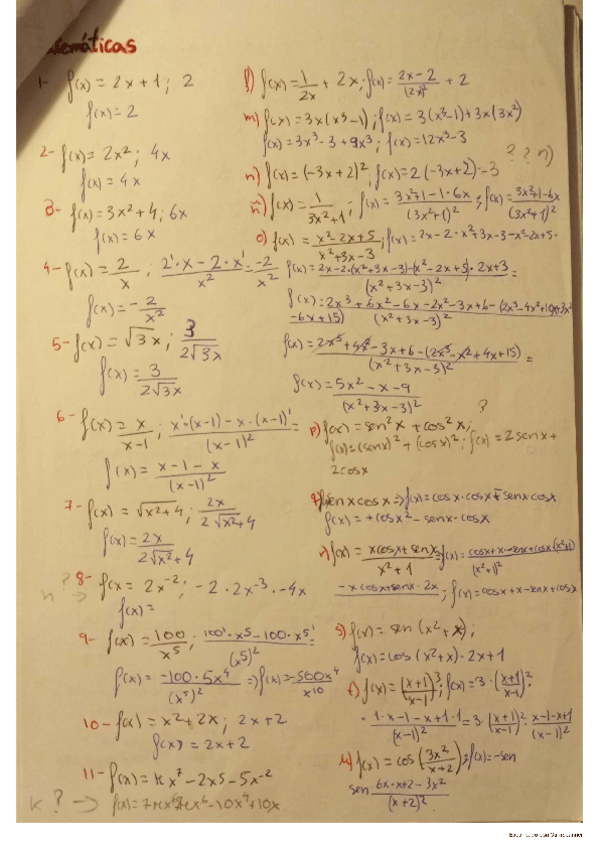 Matemáticas
1- f(x) = 2x+1 ; 2
f(x) = 2
2- f(x) = 2x² ; 4x
f(x) = 4x
3- f(x) = 3x²+4 ; 6x
f(x) = 6x
4- f(x) = 2/x ; (2'·x-2·x')/x² = -2/x²
f(x) = -2/x²
5- f(x) = √3x ; 3/(2√3x)
f(x) = 3/(2√3x)
6- f(x) = x/(x-1) ; (x'·(x-1)-x·(x-1)')/(x-1)² =
f(x) = (x-1-x)/(x-1)²
7- f(x) = √x²+4 ; 2x/(2√x²+4)
f(x) = 2x/(2√x²+4)
? 8- f(x = 2x⁻² ; -2·2x⁻³·-4x
f(x) =
9- f(x) = 100/x⁵ ; (100'·x⁵-100·x⁵')/(x⁵)² =
f(x) = (-100·5x⁴)/(x⁵)² ⇒ f(x) = -500x⁴/x¹⁰
10- f(x) = x²+2x ; 2x+2
f(x) = 2x+2
11- f(x) = πx⁷-2x⁵-5x⁻²
K ? →
l) f(x) = 1/2x + 2x ; f(x) = (2x-2)/(2x)² + 2
m) f(x) = 3x(x³-1) ; f(x) = 3(x³-1)+3x(3x²)
f(x) = 3x³-3+9x³ ; f(x) = 12x³-3
? ? n)
n) f(x) = (-3x+2)² ; f(x) = 2(-3x+2)·-3
ñ) f(x) = 1/(3x²+1) ; f(x) = (3x²+1-1·6x)/(3x²+1)² ; f(x) = (3x²+1-6x)/(3x²+1)²
o) f(x) = (x²-2x+5)/(x²+3x-3) ; f(x) = 2x-2·x²+3x-3-x²-2x+5·
f(x) = (2x-2·(x²+3x-3)-(x²-2x+5)·2x+3)/(x²+3x-3)² =
f(x) = (2x³+6x²-6x-2x²-3x+6-(2x³-4x²+10x+3x²
-6x+15)/(x²+3x-3)²
f(x) = (2x³+4x²-3x+6-(2x³-x²+4x+15)/(x²+3x-3)² =
f(x) = (5x²-x-9)/(x²+3x-3)²
?
p) f(x) = sen²x+cos²x ;
f(x) = (senx)²+(cosx)² ; f(x) = 2senx+
2cosx
q) f senxcosx ⇒ f(x) = cosx·cosx+senx·cosx
f(x) = +cosx²-senx·cosx
r) f(x) = (xcosx+senx)/(x²+1)
-xcosx+senx·2x ; f(x) = cosx+x-senx+cosx
s) f(x) = sen(x²+x) ;
f(x) = cos(x²+x)·2x+1
t) f(x) = ((x+1)/(x-1))³ ; f(x) = 3·((x+1)/(x-1))²·
·(1·x-1-x+1·1)/(x-1)² = 3·((x+1)/(x-1))²·(x-1-x+1)/(x-1)²
u) f(x) = cos(3x²/(x+2)) ; f(x) = -sen
sen (6x·x+2-3x²)/(x+2)²